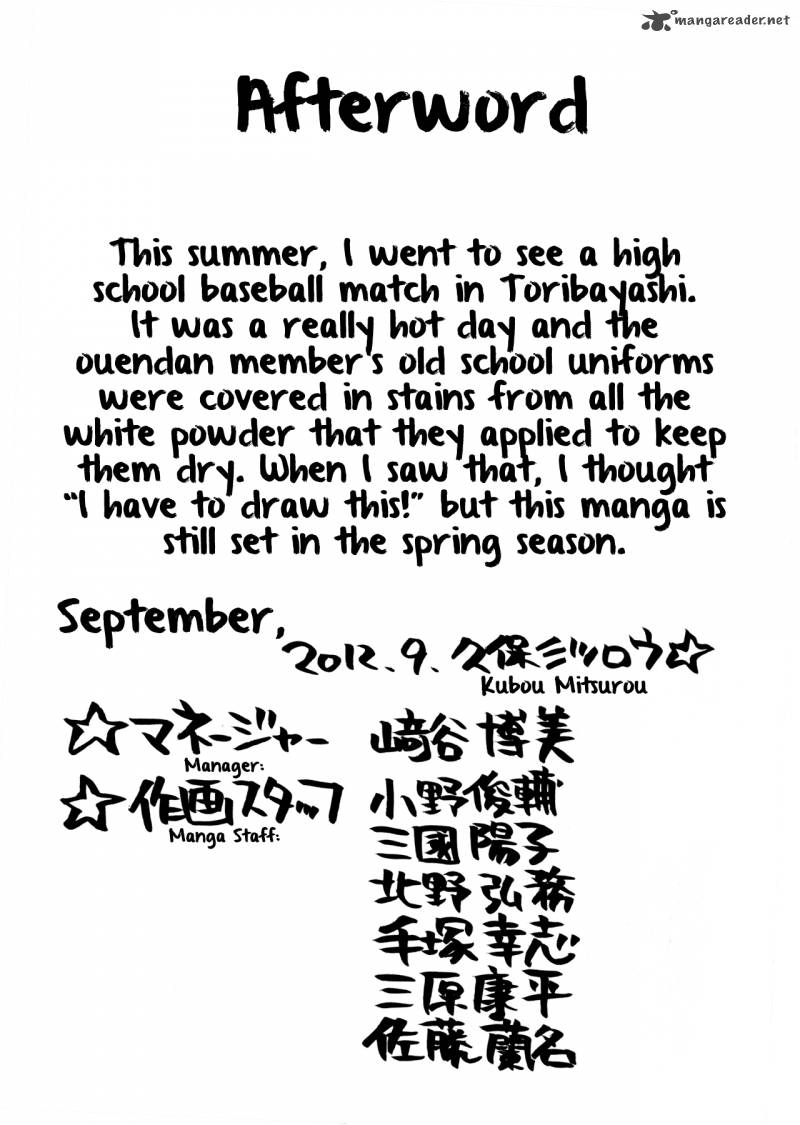 mangareader.net
Afterword
This summer, I went to see a high
school baseball match in Toribayashi.
It was a really hot day and the
ouendan member's old school uniforms
were covered in stains from all the
white powder that they applied to keep
them dry. When I saw that, I thought
“I have to draw this!” but this manga is
still set in the spring season.
September,
2012.9. 久保ミツロウ☆
Kubou Mitsurou
☆マネージャー 﨑谷 博美
Manager:
☆作画スタッフ 小野俊輔
Manga Staff:
三國 陽子
北野 弘務
手塚 幸志
三原 康平
佐藤 蘭名